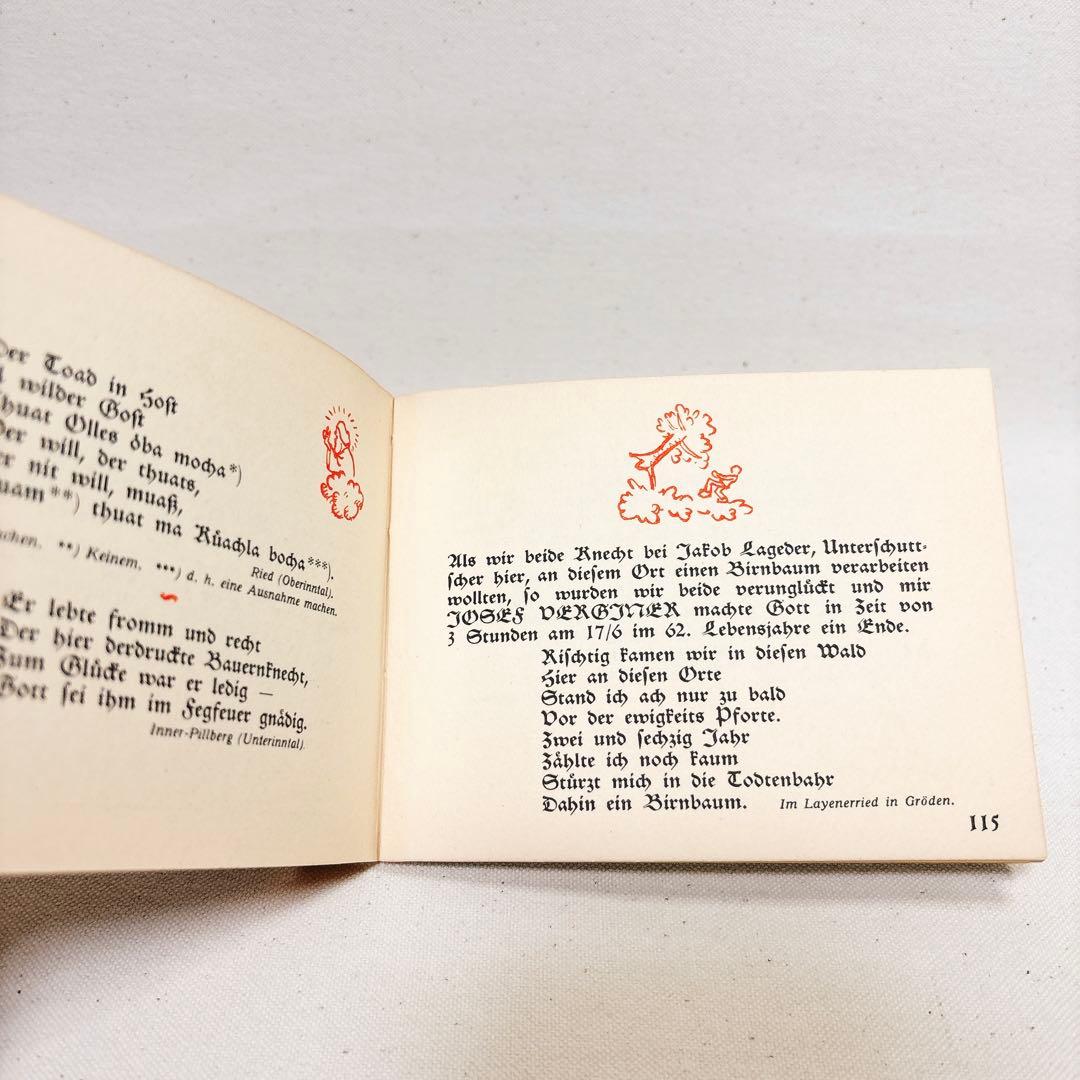 Der Toad in Host
wilder Gost
thuat Olles öba mocha*)
Der will, der thuats,
nit will, muaß,
**) thuat ma Küachla bocha***).
Ried (Oberinntal).
**) Keinem. ***) d. h. eine Ausnahme machen.
Er lebte fromm und recht
Der hier derdruckte Bauernknecht,
Zum Glücke war er ledig —
Gott sei ihm im Fegfeuer gnädig.
Inner-Pillberg (Unterinntal).
Als wir beide Knecht bei Jakob Lageder, Unterschutt-
scher hier, an diesem Ort einen Birnbaum verarbeiten
wollten, so wurden wir beide verunglückt und mir
JOSEF VERGINER machte Gott in Zeit von
3 Stunden am 17/6 im 62. Lebensjahre ein Ende.
Rischtig kamen wir in diesen Wald
Hier an diesen Orte
Stand ich ach nur zu bald
Vor der ewigkeits Pforte.
Zwei und sechzig Jahr
Zählte ich noch kaum
Stürzt mich in die Todtenbahr
Dahin ein Birnbaum. Im Layenerried in Gröden.
115